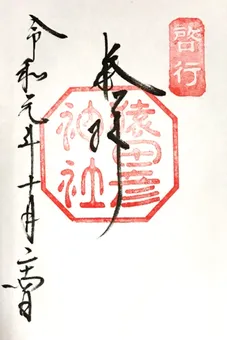 啓行
奉拝
猿田彦
神社
令和元年十月二十四日